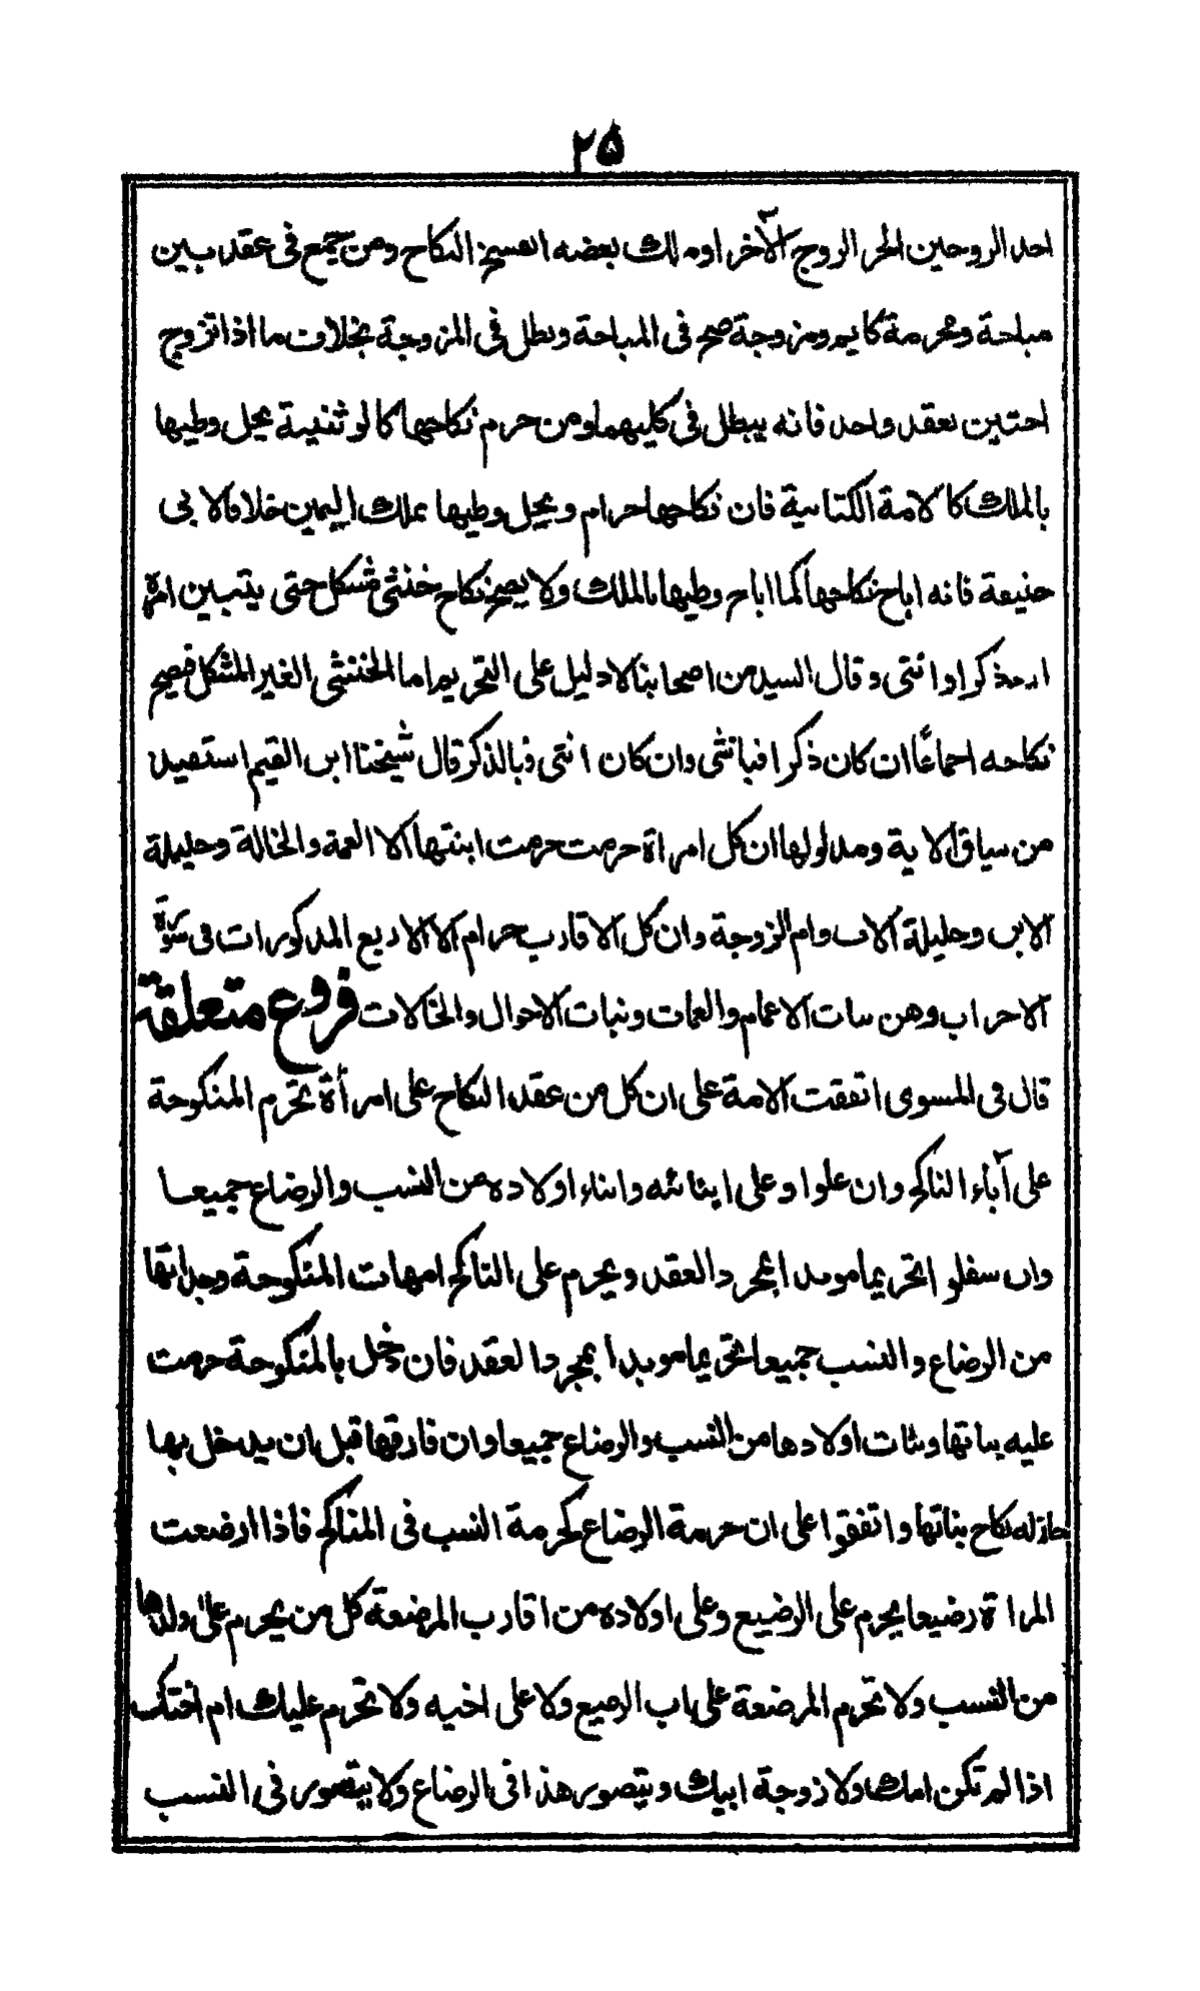 ٢٥
احد الزوجين الحر الزوج الآخر او ملك بعضه انفسخ النكاح ومن جمع فى عقد بين
مباحة ومحرمة كايم ومزوجة صح فى المباحة وبطل فى المزوجة بخلاف ما اذا تزوج
اختين بعقد واحد فانه يبطل فى كليهما ومن حرم نكاحها كالوثنية يحل وطيها
بالملك كالامة الكتابية فان نكاحها حرام ويحل وطيها بملك اليمين خلافا لابى
حنيفة فانه اباح نكاحها كما اباح وطيها بالملك ولا يصح نكاح خنثى مشكل حتى يتبين امره
ذكرا وانثى وقال السيد من اصحابنا لا دليل على التحريم اما الخنثى الغير المشكل فيصح
نكاحه اجماعًا ان كان ذكرا فبانثى وان كان انثى فبالذكر قال شيخنا ابن القيم استفيد
من سياق الاية ومدلولها ان كل امراة حرمت حرمت ابنتها الا العمة والخالة وحليلة
الابن وحليلة الاب وام الزوجة وان كل الاقارب حرام الا الاربع المذكورات فى سورة
الاحزاب وهن بنات الاعمام والعمات وبنات الاخوال والخالات فروع متعلقة
قال فى المسوى اتفقت الامة على ان كل من عقد النكاح على امرأة تحرم المنكوحة
على آباء الناكح وان علوا وعلى ابنائه وابناء اولاده من النسب والرضاع جميعا
وان سفلوا تحريما موبدا بمجرد العقد ويحرم على الناكح امهات المنكوحة وجداتها
من الرضاع والنسب جميعا تحريما موبدا بمجرد العقد فان دخل بالمنكوحة حرمت
عليه بناتها وبنات اولادها من النسب والرضاع جميعا وان فارقها قبل ان يدخل بها
جاز له نكاح بناتها واتفقوا على ان حرمة الرضاع كحرمة النسب فى المناكح فاذا ارضعت
المراة رضيعا يحرم على الرضيع وعلى اولاده من اقارب المرضعة كل من يحرم على ولدها
من النسب ولا تحرم المرضعة على اب الرضيع ولا على اخيه ولا تحرم عليك ام اختك
اذا لم تكن امك ولا زوجة ابيك ويتصور هذا فى الرضاع ولا يتصور فى النسب